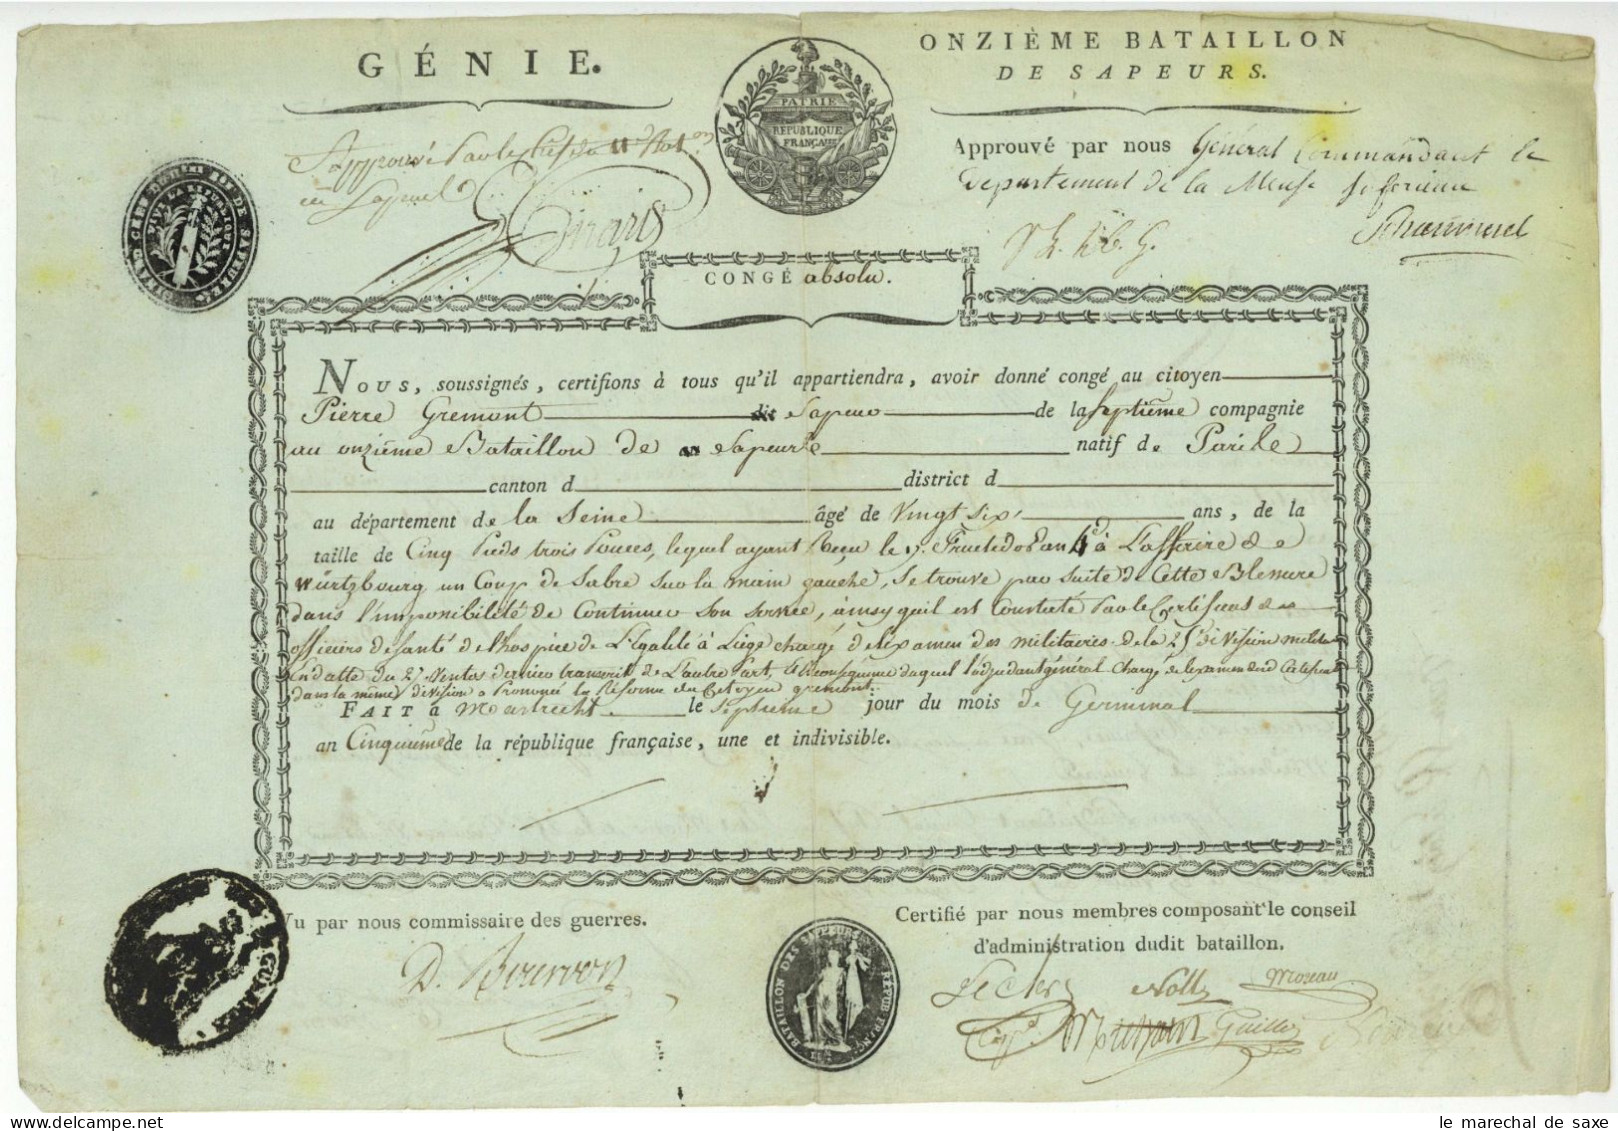 GÉNIE.
ONZIÈME BATAILLON
DE SAPEURS.
PATRIE
RÉPUBLIQUE
FRANÇAISE
Approuvé par le Chef du 11e Baton
de Sapeurs
Approuvé par nous Général Commandant le
Departement de la Meuse Inferieure
VIVE LA REPUBLIQUE
CONGÉ absolu.
Nous, soussignés, certifions à tous qu'il appartiendra, avoir donné congé au citoyen
Pierre Gremont dit Sapeur de la septième compagnie
au onzième Bataillon de Sapeurs natif de
canton d district d
au département de la Seine âgé de Vingt six ans, de la
taille de Cinq Pieds trois Pouces, lequel ayant Reçu le 17 Fructidor an 4e à L'affaire de
Würtzbourg un Coup de Sabre sur la main gauche, se trouve par suite de Cette Blessure
dans l'impossibilité de Continuer Son Service, ainsy quil est Constaté Par le Certificat des
officiers de santé de l'hospice de L'Egalité à Liège chargé de l'examen des militaires de la 25e division militaire
En datte du 27 Ventos dernier transcrit de L'autre Part, et En conséquence duquel l'adjudant général Chargé de l'examen dud Certificat
dans la même division a Prononcé la Réforme du Citoyen gremont.
FAIT à Mastrecht le Septieme jour du mois de Germinal
an Cinquieme de la république française, une et indivisible.
Vu par nous commissaire des guerres.
Certifié par nous membres composant le conseil
d'administration dudit bataillon.
D. Bourdon
BATAILLON DES SAPEURS REPUB. FRANC.
Leclerc Moreau
Guillot
le marechal de saxe